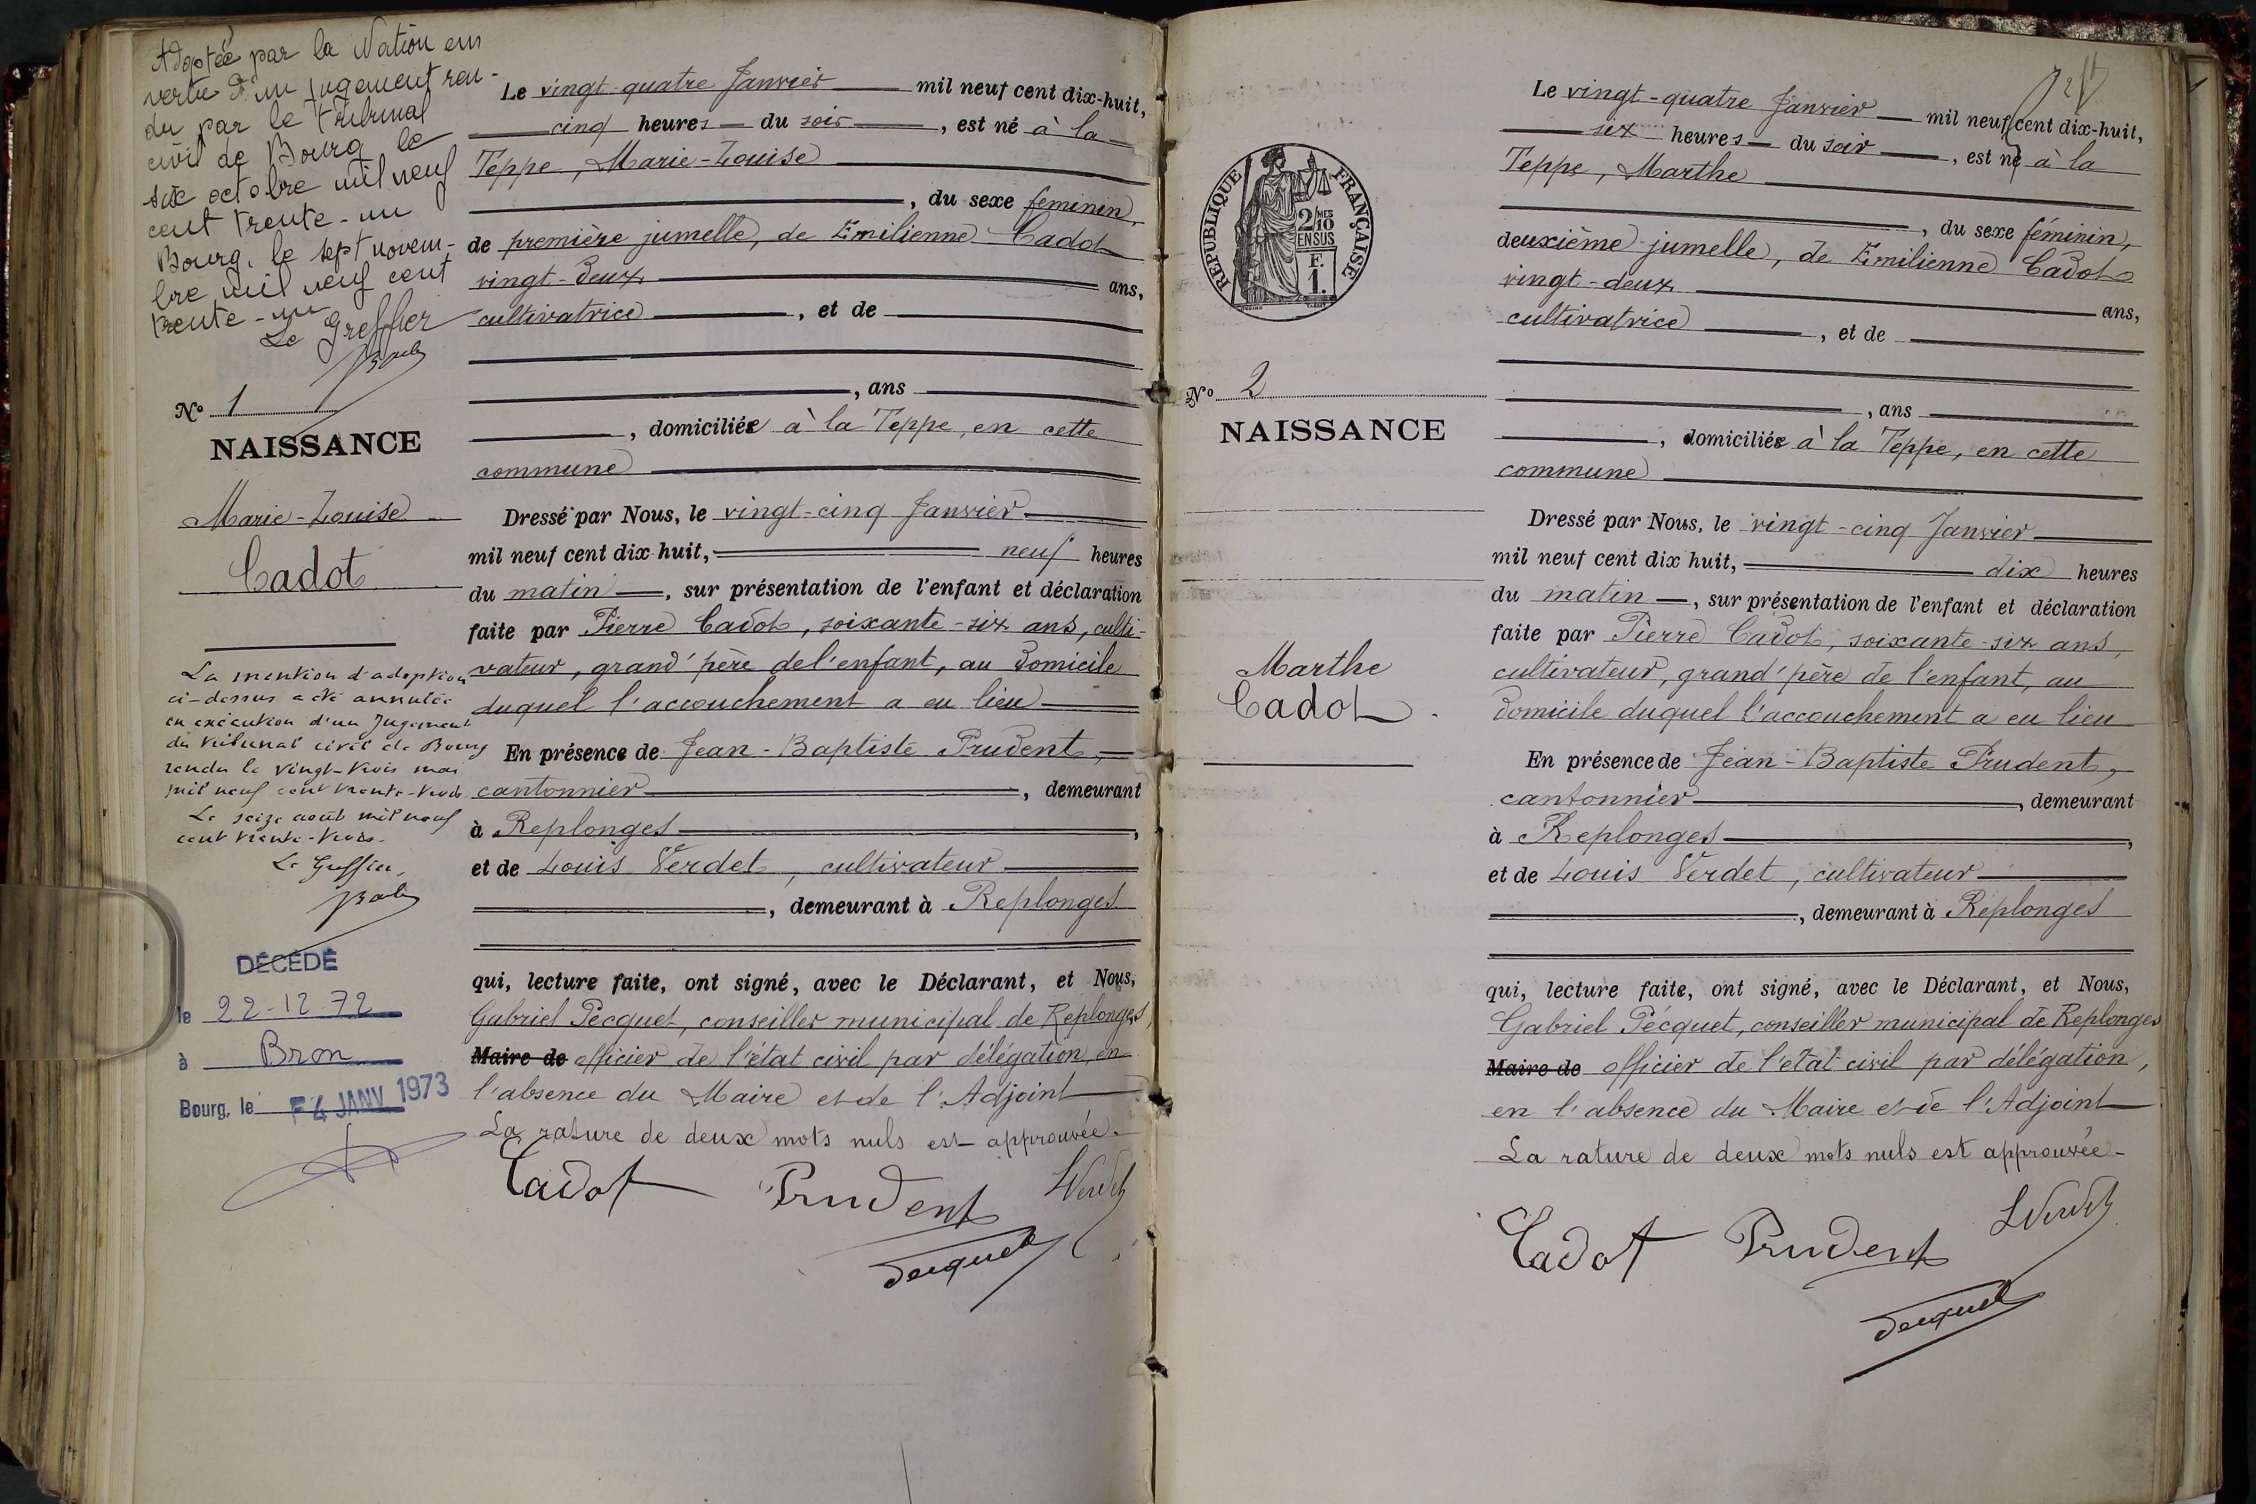 Adoptée par la Nation en
vertu d'un jugement ren-
du par le tribunal
civil de Bourg le
six octobre mil neuf
cent trente-un
Bourg, le sept novem-
bre mil neuf cent
trente-un
Le Greffier
No 1
NAISSANCE
Marie-Louise
Cadot
La mention d'adoption
ci-dessus a été annulée
en exécution d'un Jugement
du tribunal civil de Bourg
rendu le vingt-trois mai
mil neuf cent trente-trois
Le seize août mil neuf
cent trente-trois.
Le Greffier,
DÉCÉDÉ
le 22-12-72
à Bron
Bourg, le F 4 JANV 1973
Le vingt-quatre Janvier mil neuf cent dix-huit,
cinq heures du soir, est né à la
Teppe, Marie-Louise
, du sexe féminin,
de première jumelle, de Emilienne Cadot
vingt-deux ans,
cultivatrice, et de
, ans
, domiciliée à la Teppe, en cette
commune
Dressé par Nous, le vingt-cinq Janvier
mil neuf cent dix-huit, neuf heures
du matin, sur présentation de l'enfant et déclaration
faite par Pierre Cadot, soixante-six ans, culti-
vateur, grand'père de l'enfant, au domicile
duquel l'accouchement a eu lieu
En présence de Jean-Baptiste Prudent,
cantonnier, demeurant
à Replonges,
et de Louis Verdet, cultivateur
, demeurant à Replonges
qui, lecture faite, ont signé, avec le Déclarant, et Nous,
Gabriel Pecquet, conseiller municipal de Replonges,
Maire de officier de l'état civil par délégation, en
l'absence du Maire et de l'Adjoint
La rature de deux mots nuls est approuvée.
Cadot Prudent LVerdet
Pecquet
RÉPUBLIQUE FRANÇAISE
2/10 MES
EN SUS
F.
1.
No 2
NAISSANCE
Marthe
Cadot
Le vingt-quatre Janvier mil neuf cent dix-huit,
six heures du soir, est né à la
Teppe, Marthe
, du sexe féminin,
deuxième jumelle, de Emilienne Cadot
vingt-deux ans,
cultivatrice, et de
, ans
, domiciliée à la Teppe, en cette
commune
Dressé par Nous, le vingt-cinq Janvier
mil neuf cent dix huit, dix heures
du matin, sur présentation de l'enfant et déclaration
faite par Pierre Cadot, soixante-six ans,
cultivateur, grand'père de l'enfant, au
domicile duquel l'accouchement a eu lieu
En présence de Jean-Baptiste Prudent,
cantonnier, demeurant
à Replonges,
et de Louis Verdet, cultivateur
, demeurant à Replonges
qui, lecture faite, ont signé, avec le Déclarant, et Nous,
Gabriel Pécquet, conseiller municipal de Replonges
Maire de officier de l'état civil par délégation,
en l'absence du Maire et de l'Adjoint
La rature de deux mots nuls est approuvée.
Cadot Prudent LVerdet
Pecquet